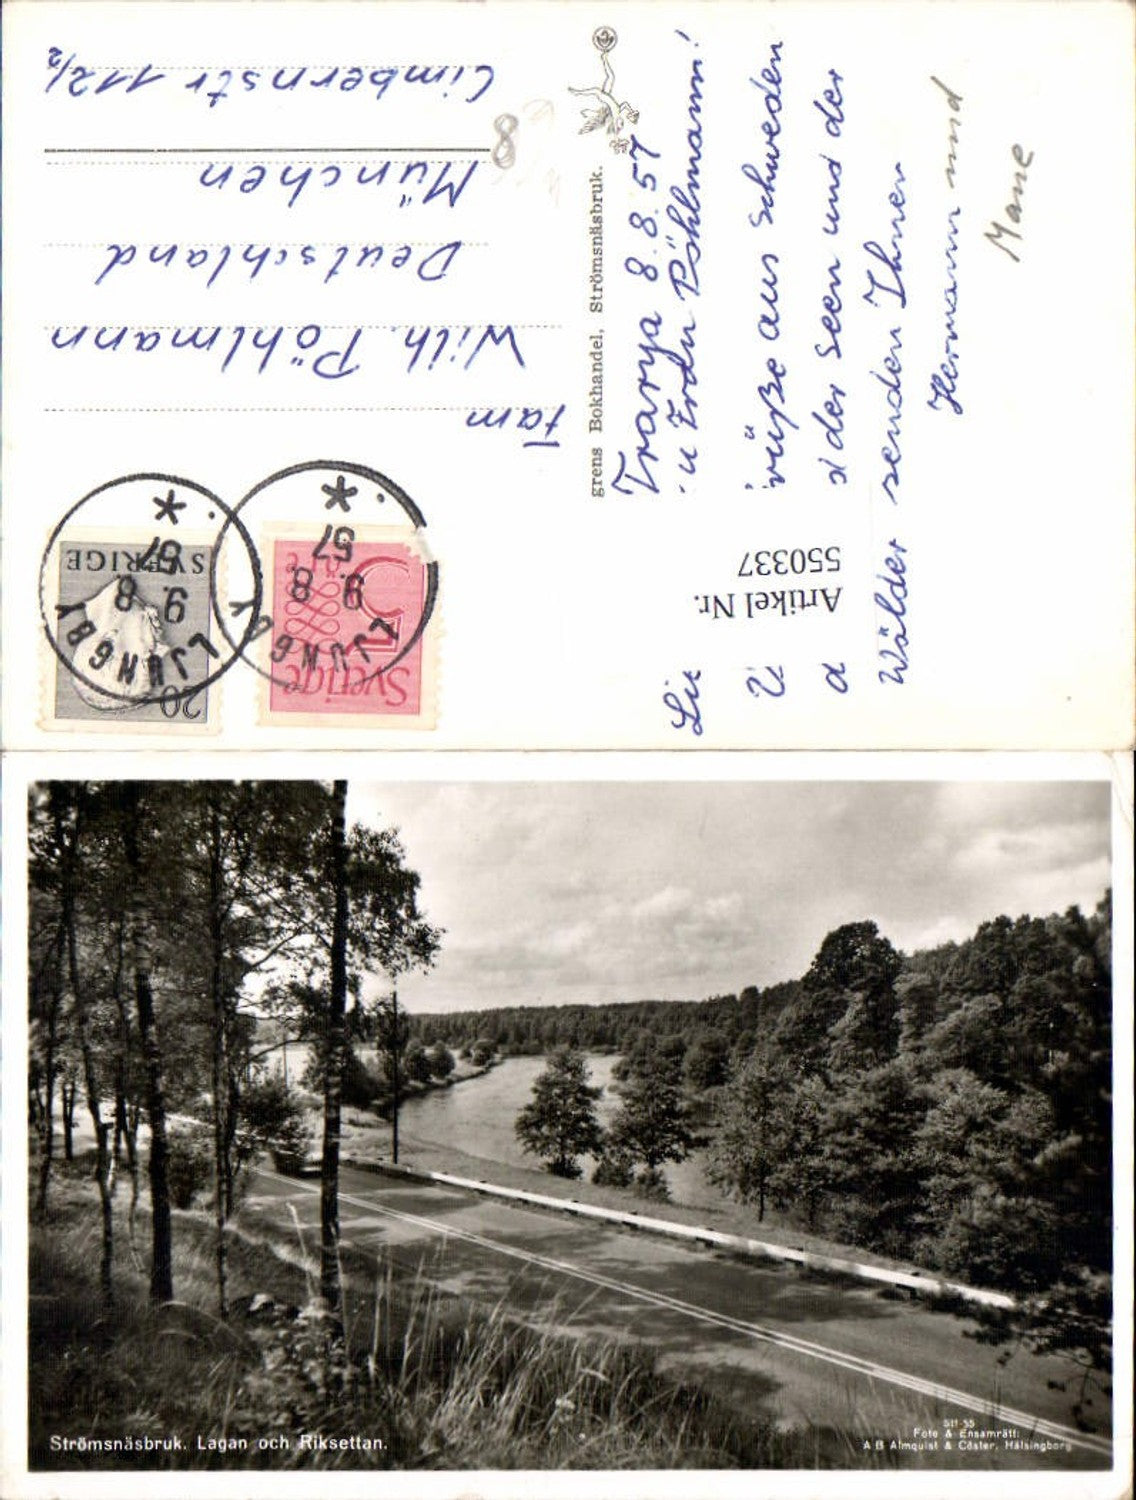 Traryd 8.8.57
u Frau Pöhlmann!
aus Schweden
der Seen und der
Wälder senden Ihnen
Hermann und
grens Bokhandel, Strömsnäsbruk.
Artikel Nr.
550337
Fam
Wilh. Pöhlmann
Deutschland
München
Cimbernstr 112/2
8
Sverige
LJUNGBY
9.8.
57
20
SVERIGE
LJUNGBY
9.8
57
Strömsnäsbruk. Lagan och Riksettan.
Foto & Ensamrätt:
A B Almquist & Cöster, Hälsingborg